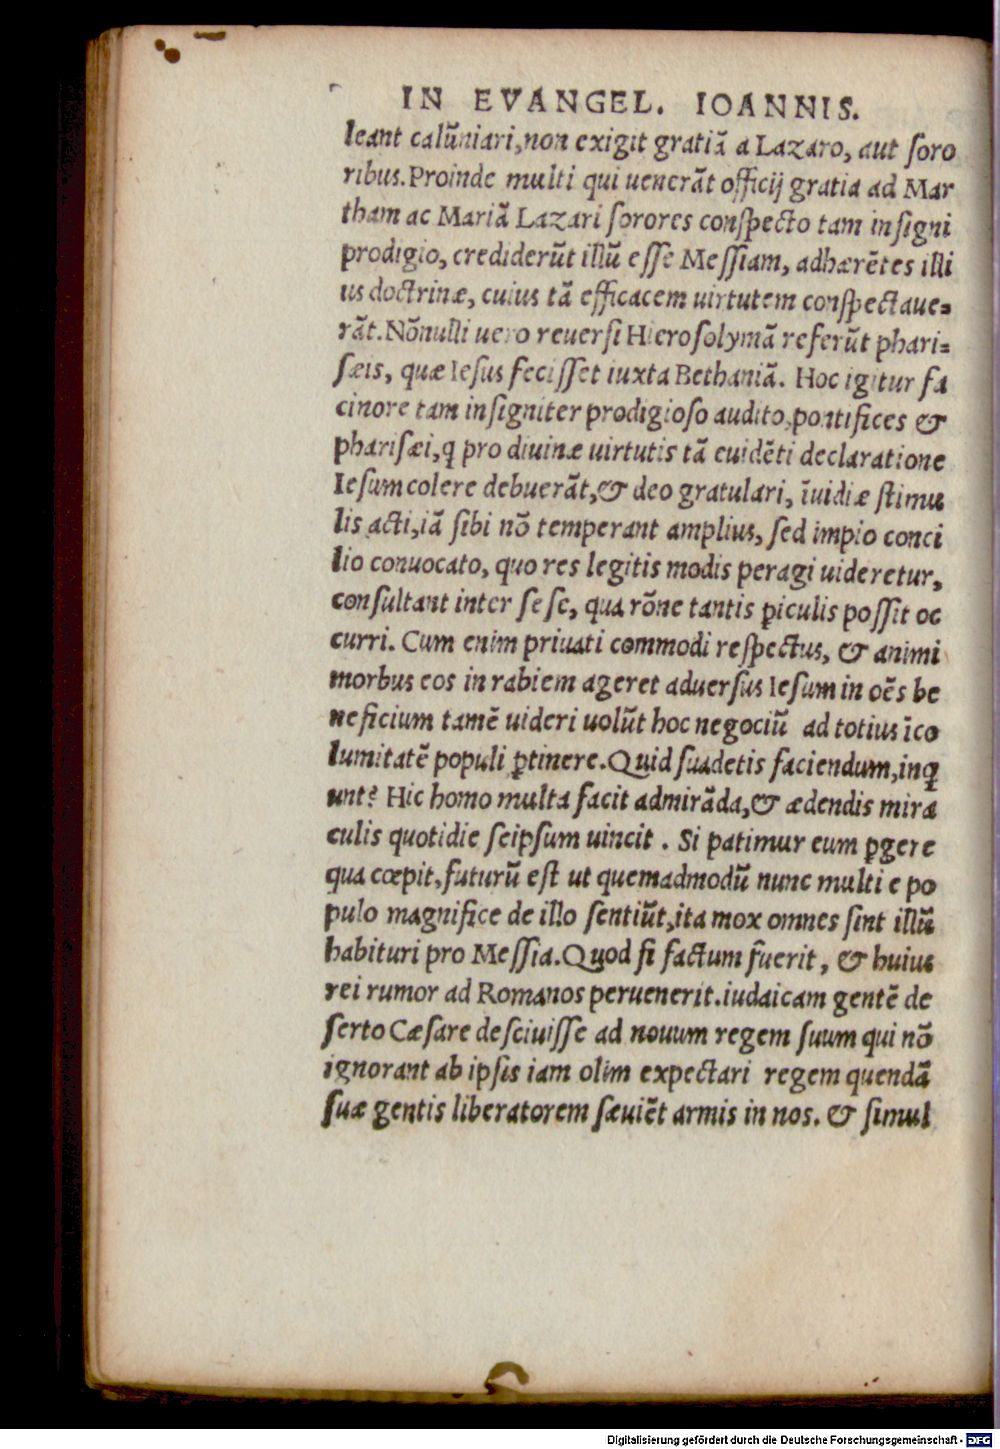 IN EVANGEL. IOANNIS.
leant calũniari, non exigit gratiã a Lazaro, aut soro
ribus. Proinde multi qui uenerãt officij gratia ad Mar
tham ac Mariã Lazari sorores conspecto tam insigni
prodigio, crediderũt illũ esse Messiam, adhærẽtes illi
us doctrinæ, cuius tã efficacem uirtutem conspectaue=
rãt. Nõnulli uero reuersi Hierosolymã referũt phari=
sæis, quæ Iesus fecisset iuxta Bethaniã. Hoc igitur fa
cinore tam insigniter prodigioso audito, pontifices &
pharisæi, q̃ pro diuinæ uirtutis tã euidẽti declaratione
Iesum colere debuerãt, & deo gratulari, ĩuidiæ stimu
lis acti, iã sibi nõ temperant amplius, sed impio conci
lio conuocato, quo res legitis modis peragi uideretur,
consultant inter se se, qua rõne tantis ꝑiculis possit oc
curri. Cum enim priuati commodi respectus, & animi
morbus eos in rabiem ageret aduersus Iesum in oẽs be
neficium tamẽ uideri uolũt hoc negociũ ad totius ĩco
lumitatẽ populi ꝑtinere. Quid suadetis faciendum, inq̃
unt? Hic homo multa facit admirãda, & ædendis mira
culis quotidie seipsum uincit . Si patimur eum ꝑgere
qua cœpit, futurũ est ut quemadmodũ nunc multi e po
pulo magnifice de illo sentiũt, ita mox omnes sint illũ
habituri pro Messia. Quod si factum fuerit, & huius
rei rumor ad Romanos peruenerit. iudaicam gentẽ de
serto Cæsare desciuisse ad nouum regem suum qui nõ
ignorant ab ipsis iam olim expectari regem quendã
suæ gentis liberatorem sæuiẽt armis in nos. & simul
Digitalisierung gefördert durch die Deutsche Forschungsgemeinschaft - DFG